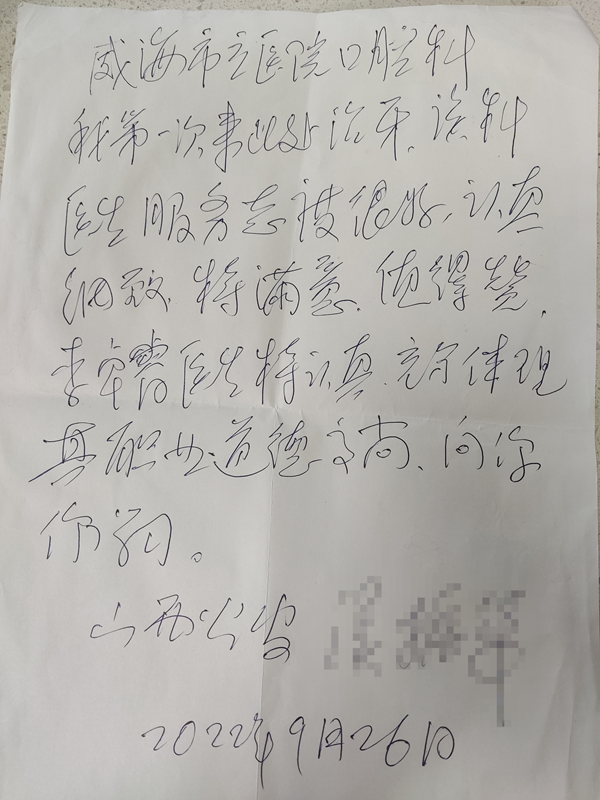 威海市立医院口腔科
我第一次来此处治牙、该科
医生服务态度很好、认真
细致、特满意、值得赞、
李医生特认真、充分体现
其职业道德高尚、向你
们学习。
山西公安
2022年9月26日